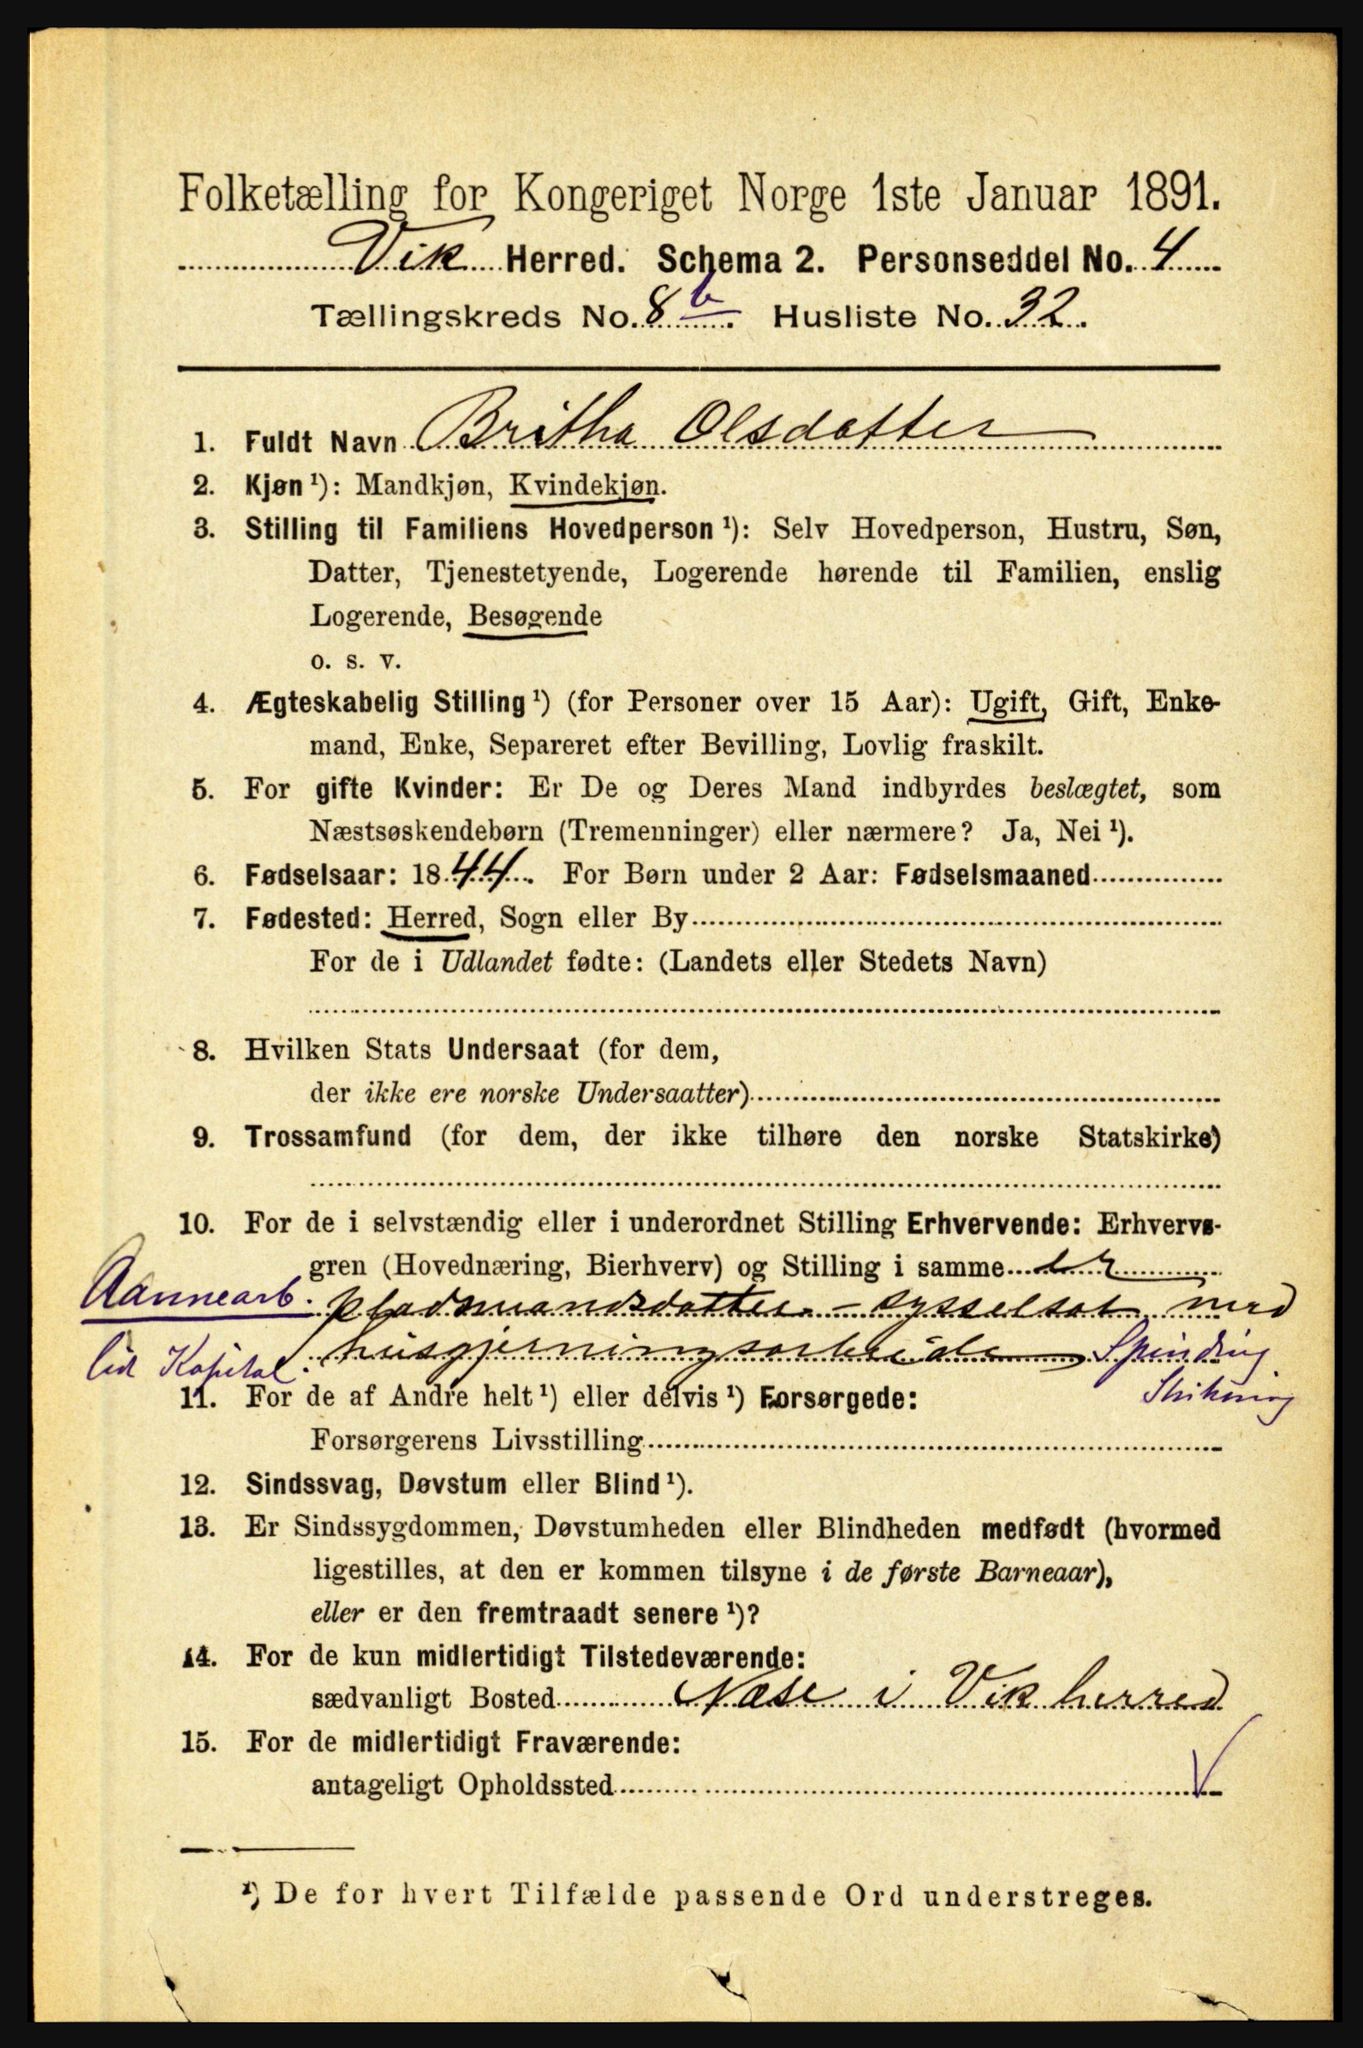 Folketælling for Kongeriget Norge 1ste Januar 1891.
Vik Herred. Schema 2. Personseddel No. 4
Tællingskreds No. 8 b. Husliste No. 32.
1. Fuldt Navn Britha Olsdatter
2. Kjøn ¹): Mandkjøn, Kvindekjøn.
3. Stilling til Familiens Hovedperson ¹): Selv Hovedperson, Hustru, Søn,
Datter, Tjenestetyende, Logerende hørende til Familien, enslig
Logerende, Besøgende
o. s. v.
4. Ægteskabelig Stilling ¹) (for Personer over 15 Aar): Ugift, Gift, Enke-
mand, Enke, Separeret efter Bevilling, Lovlig fraskilt.
5. For gifte Kvinder: Er De og Deres Mand indbyrdes beslægtet, som
Næstsøskendebørn (Tremenninger) eller nærmere? Ja, Nei ¹).
6. Fødselsaar: 1844. For Børn under 2 Aar: Fødselsmaaned
7. Fødested: Herred, Sogn eller By
For de i Udlandet fødte: (Landets eller Stedets Navn)
8. Hvilken Stats Undersaat (for dem,
der ikke ere norske Undersaatter)
9. Trossamfund (for dem, der ikke tilhøre den norske Statskirke)
10. For de i selvstændig eller i underordnet Stilling Erhvervende: Erhvervs-
gren (Hovednæring, Bierhverv) og Stilling i samme er
Aannearb. pladsmandsdatter - sysselsat med
lid Kapital. husgjerningsarbeide Spinding
Strikning
11. For de af Andre helt ¹) eller delvis ¹) Forsørgede:
Forsørgerens Livsstilling
12. Sindssvag, Døvstum eller Blind ¹).
13. Er Sindssygdommen, Døvstumheden eller Blindheden medfødt (hvormed
ligestilles, at den er kommen tilsyne i de første Barneaar),
eller er den fremtraadt senere ¹)?
14. For de kun midlertidigt Tilstedeværende:
sædvanligt Bosted Næse i Vik herred
15. For de midlertidigt Fraværende:
antageligt Opholdssted
¹) De for hvert Tilfælde passende Ord understreges.